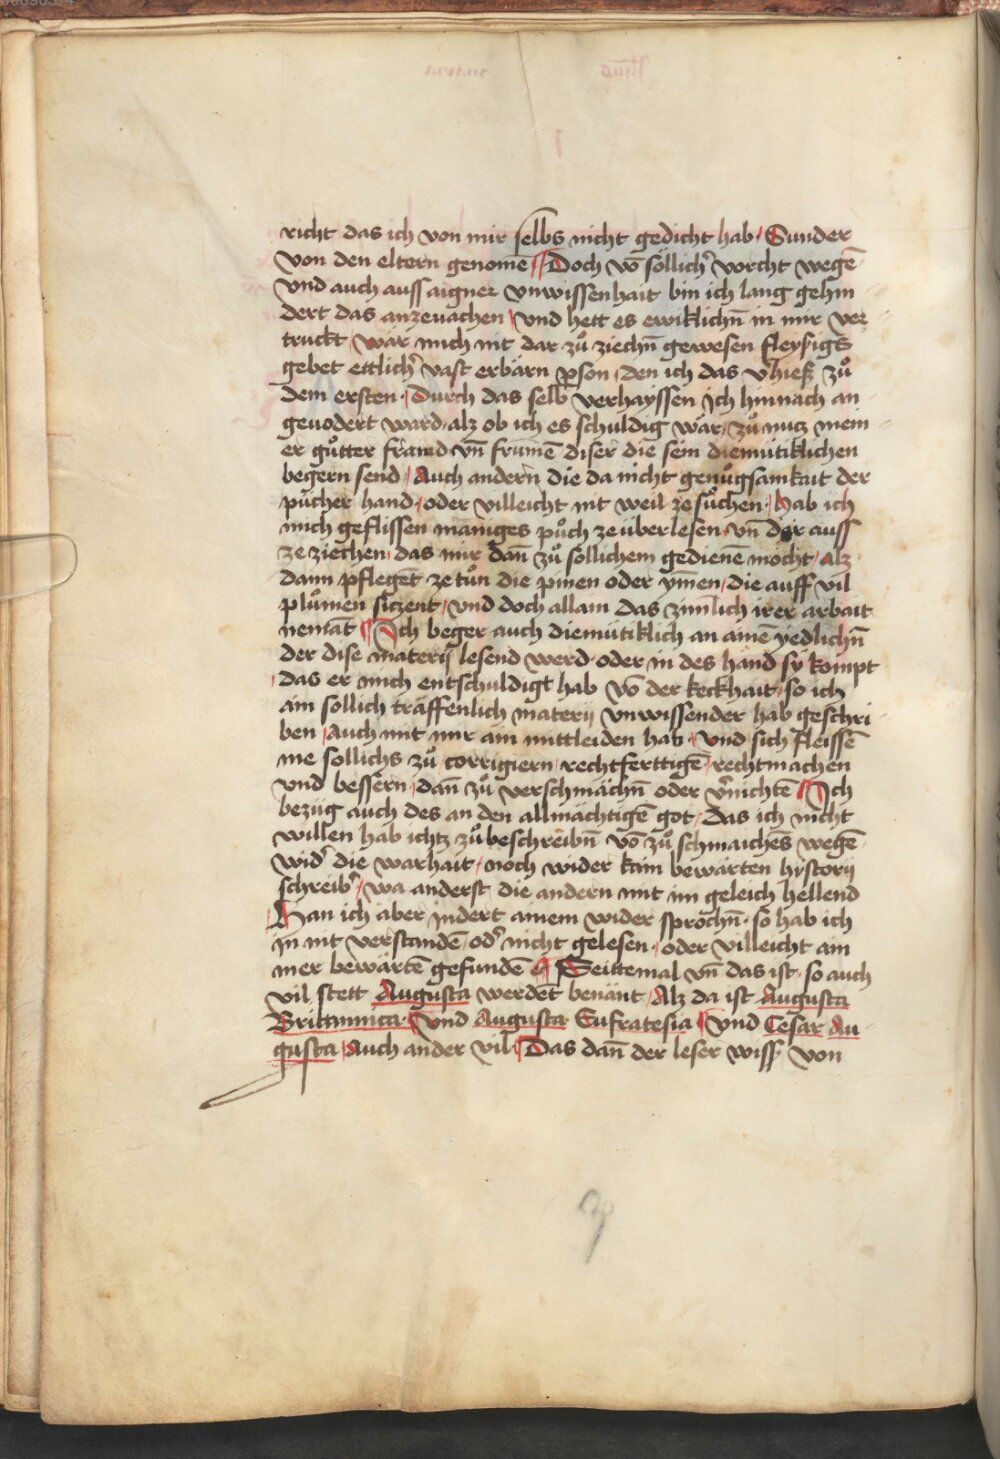 richt das ich von mir selbs nicht gedicht hab / Sunder
von den eltern genomē ¶ Doch vō söllichʾ vorcht wegē
vnd auch auss aigner vnwissenhait bin ich lang gehin
dert das anzevachen / vnd hett es ewiklichn̄ in mir ver
truckt / wär mich nit dar zů ziechn̄ gewesen fleysigs
gebet ettlichʾ vast erbärn pson / den ich das vʾhieß zů
dem ersten · Durch das selb verhayssen Ich hinnach an
geuodert ward / alz ob ich es schuldig wär / zů nutz mein
er gůtter fraind vn̄ frumē diser die sein diemütiklichen
begern send / Auch andern die da nicht genůgsamkait der
pücher hand / oder villeicht nit weil ze sůchen · Hab ich
mich geflissen maniges půch ze überlesen · vn̄ dar auss
ze ziechen / das mir dan̄ zů sollichem gedienē möcht / alz
dann pflegēt ze tůn die pinen oder ym̄en / die auff vil
plůmen siczent / vnd doch allain das zimlich irer arbait
nemāt ¶ Ich beger auch diemütiklich an ainē yedlichn̄
der dise materij lesend werd · oder in des hand sy kompt
/ das er mich entschuldigt hab vō der keckhait / so ich
ain söllich träffenlich materij vnwissender hab geschri
ben / Auch mit mir ain mittleiden hab · Vnd sich fleissē
me sollichs zů corrigiern / rechtferttigē / rechtmachen
vnd bessern / dan̄ zů verschmächn̄ oder vʾnichtē ¶ Ich
bezüg auch des an den allmächtigē got / das ich nicht
willen hab ichtz zů beschreibn̄ vō zů schmaichēs wegē
widʾ die warhait / noch wider kain bewärten hystorij
schreibʾ / wa anderst die andern mit im geleich hellend
/ Han ich aber indert ainem wider sprochn̄ · so hab ich
in nit verstandē / odʾ nicht gelesen · oder villeicht ain
mer bewärtē gefundē ¶ Seittemal vn̄ das ist · so auch
vil stett Augusta werdēt benānt / Alz da ist Augusta
Britannica / vnd Augusta Eufratesia / vnd Cesar Au
gusta / Auch ander vil / Das dan̄ der leser wiss von